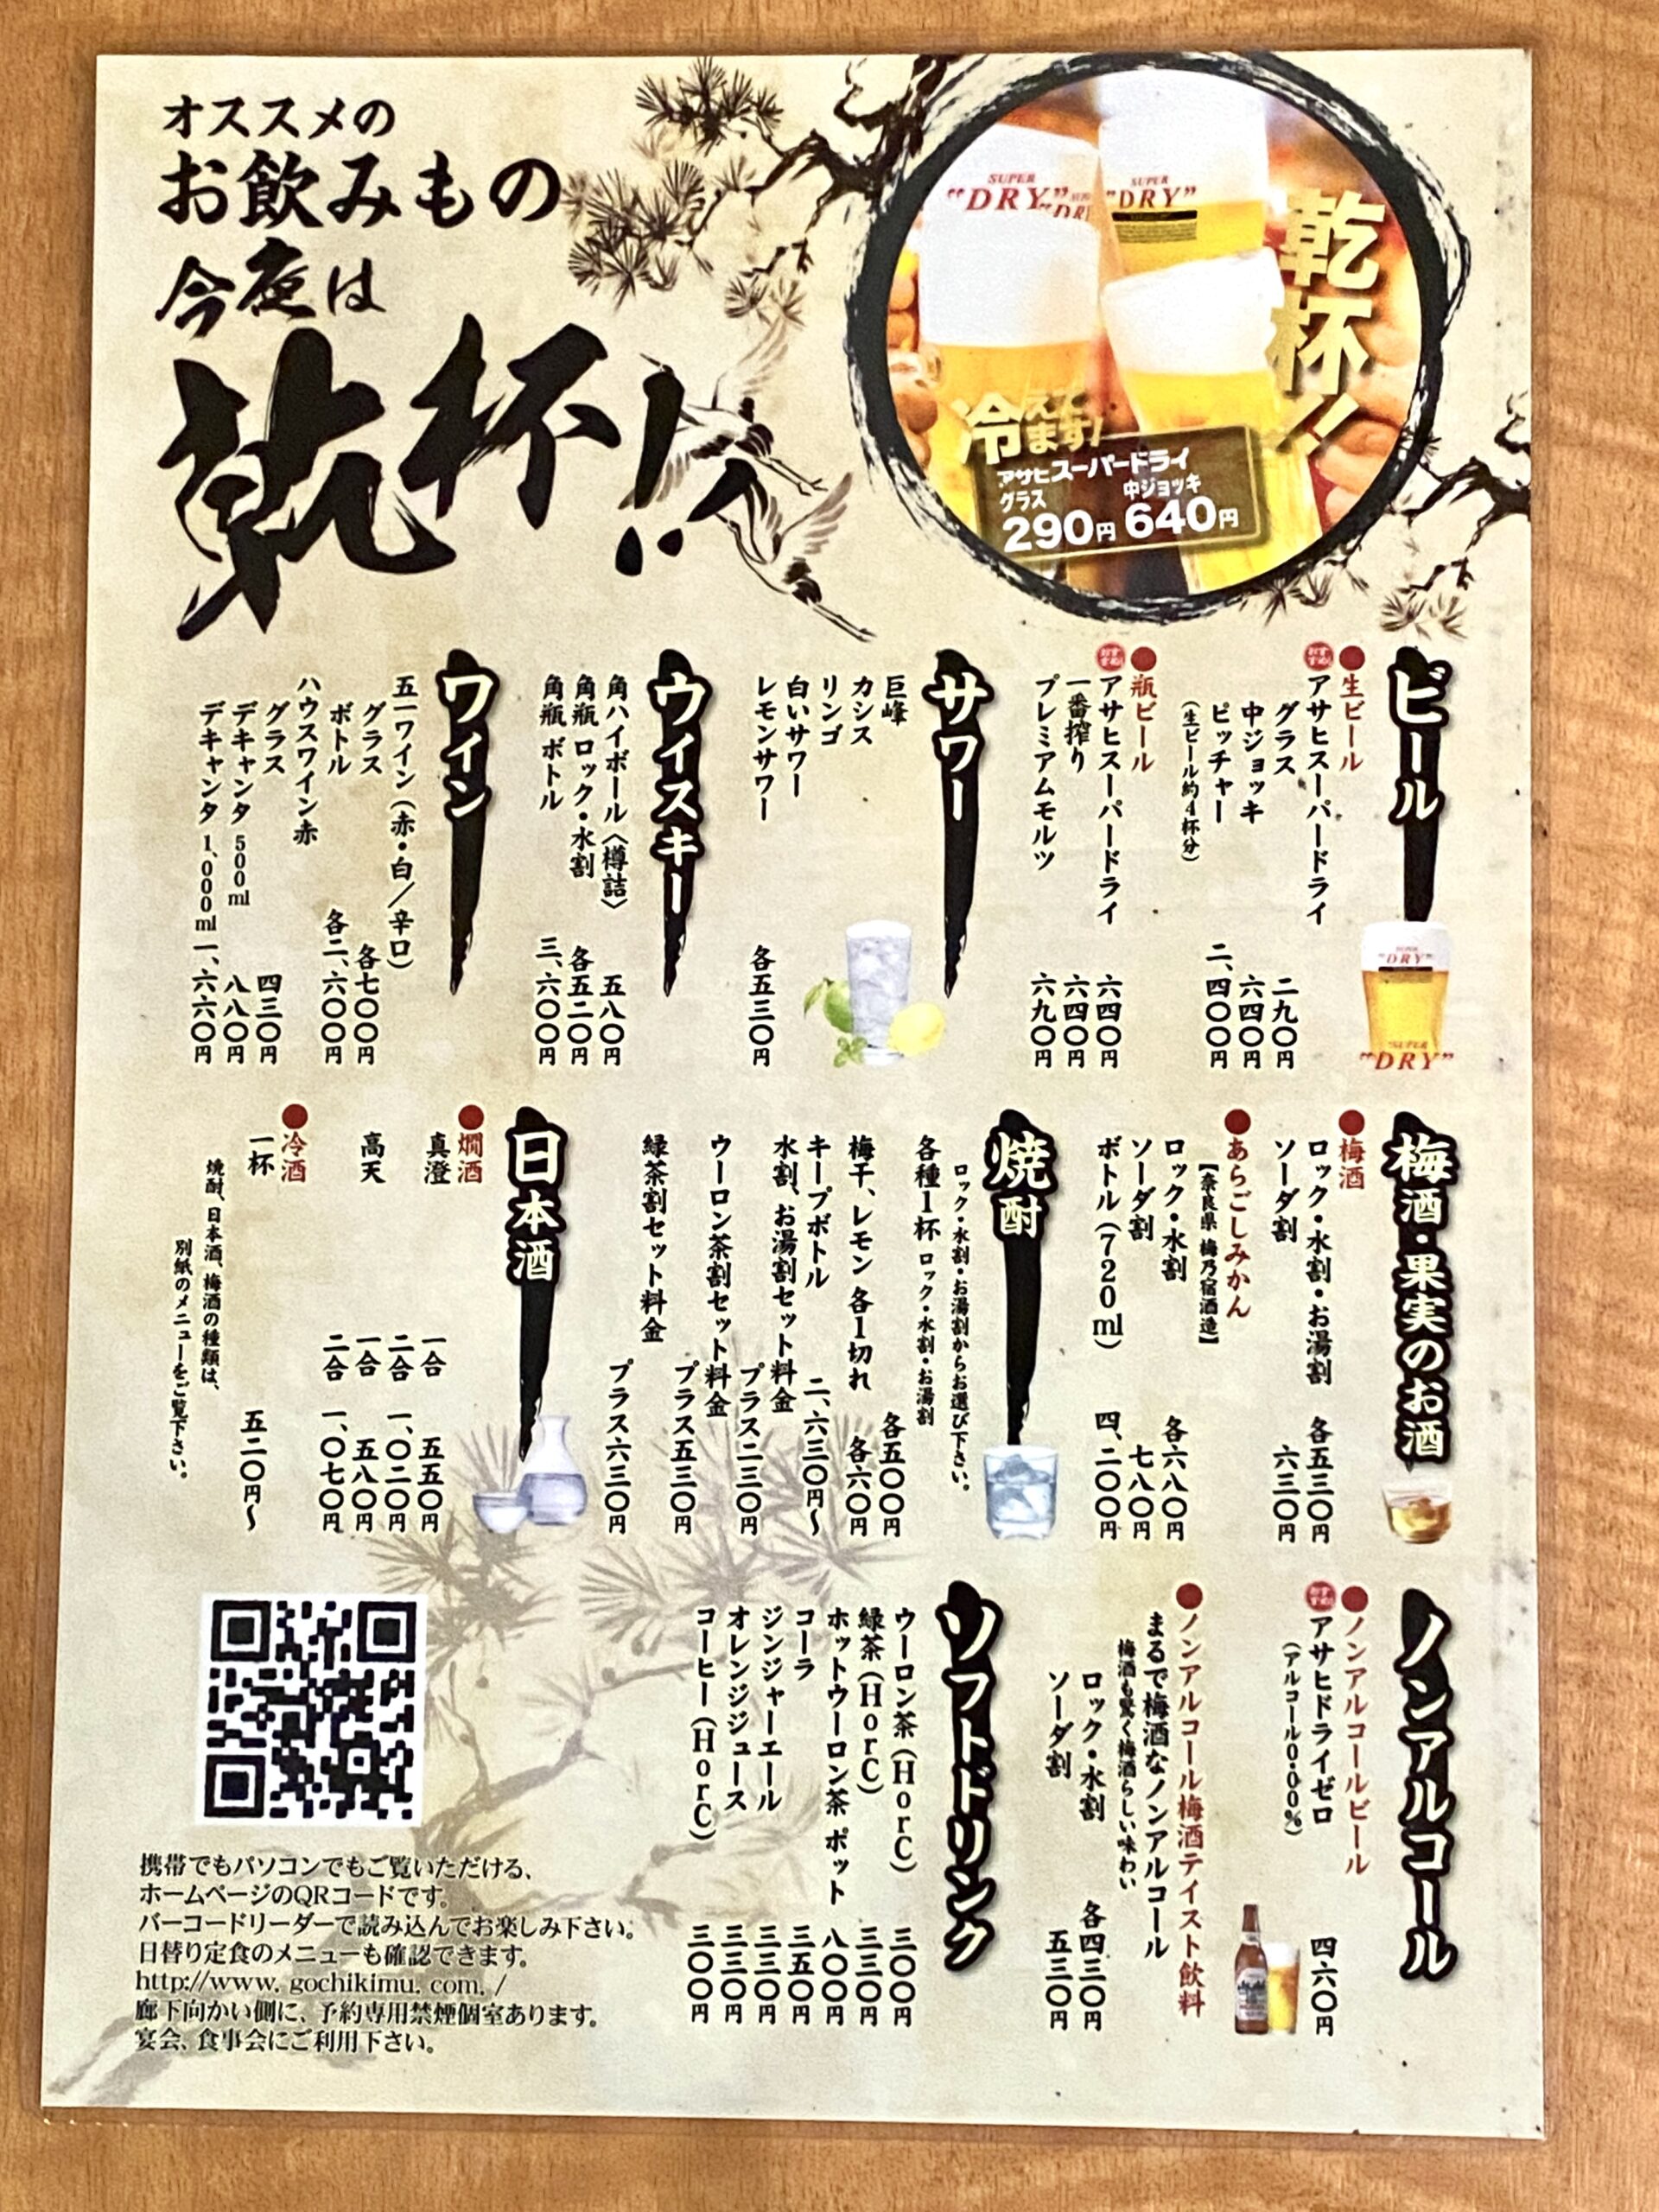 オススメの
お飲みもの
今夜は
乾杯!!
SUPER
"DRY"
SUPER
"DRY"
乾杯!!
冷えてます!
アサヒスーパードライ
グラス 中ジョッキ
290円 640円
ビール
●生ビール
おすすめ! アサヒスーパードライ
グラス 二九〇円
中ジョッキ 六四〇円
ピッチャー 二、四〇〇円
(生ビール約4杯分)
●瓶ビール
おすすめ! アサヒスーパードライ 六四〇円
一番搾り 六四〇円
プレミアムモルツ 六九〇円
SUPER
"DRY"
SUPER
"DRY"
サワー
巨峰
カシス
リンゴ
白いサワー
レモンサワー 各五三〇円
ウイスキー
角ハイボール〈樽詰〉 五八〇円
角瓶 ロック・水割 各五二〇円
角瓶 ボトル 三、六〇〇円
ワイン
五一ワイン(赤・白/辛口)
グラス 各七〇〇円
ボトル 各二、六〇〇円
ハウスワイン赤
グラス 四三〇円
デキャンタ 500ml 八八〇円
デキャンタ 1,000ml 一、六六〇円
梅酒・果実のお酒
●梅酒
ロック・水割・お湯割 各五三〇円
ソーダ割 六三〇円
●あらごしみかん
【奈良県 梅乃宿酒造】
ロック・水割 各六八〇円
ソーダ割 七八〇円
ボトル(720ml) 四、二〇〇円
焼酎
ロック・水割・お湯割からお選び下さい。
各種1杯 ロック・水割・お湯割
各五〇〇円
梅干、レモン 各1切れ 各六〇円
キープボトル 二、六三〇円〜
水割、お湯割セット料金
プラス二三〇円
ウーロン茶割セット料金
プラス五三〇円
緑茶割セット料金
プラス六三〇円
日本酒
●燗酒
真澄 一合 五五〇円
二合 一、〇二〇円
高天 一合 五八〇円
二合 一、〇七〇円
●冷酒
一杯 五二〇円〜
焼酎、日本酒、梅酒の種類は、
別紙のメニューをご覧下さい。
ノンアルコール
●ノンアルコールビール
おすすめ! アサヒドライゼロ 四六〇円
(アルコール0.00%)
●ノンアルコール梅酒テイスト飲料
まるで梅酒なノンアルコール
梅酒も驚く梅酒らしい味わい
ロック・水割 各四三〇円
ソーダ割 五三〇円
ソフトドリンク
ウーロン茶(HorC) 三〇〇円
緑茶(HorC) 三三〇円
ホットウーロン茶 ポット 八〇〇円
コーラ 三五〇円
ジンジャーエール 三三〇円
オレンジジュース 三三〇円
コーヒー(HorC) 三〇〇円
携帯でもパソコンでもご覧いただける、
ホームページのQRコードです。
バーコードリーダーで読み込んでお楽しみ下さい。
日替り定食のメニューも確認できます。
http://www. gochikimu. com. /
廊下向かい側に、予約専用禁煙個室あります。
宴会、食事会にご利用下さい。